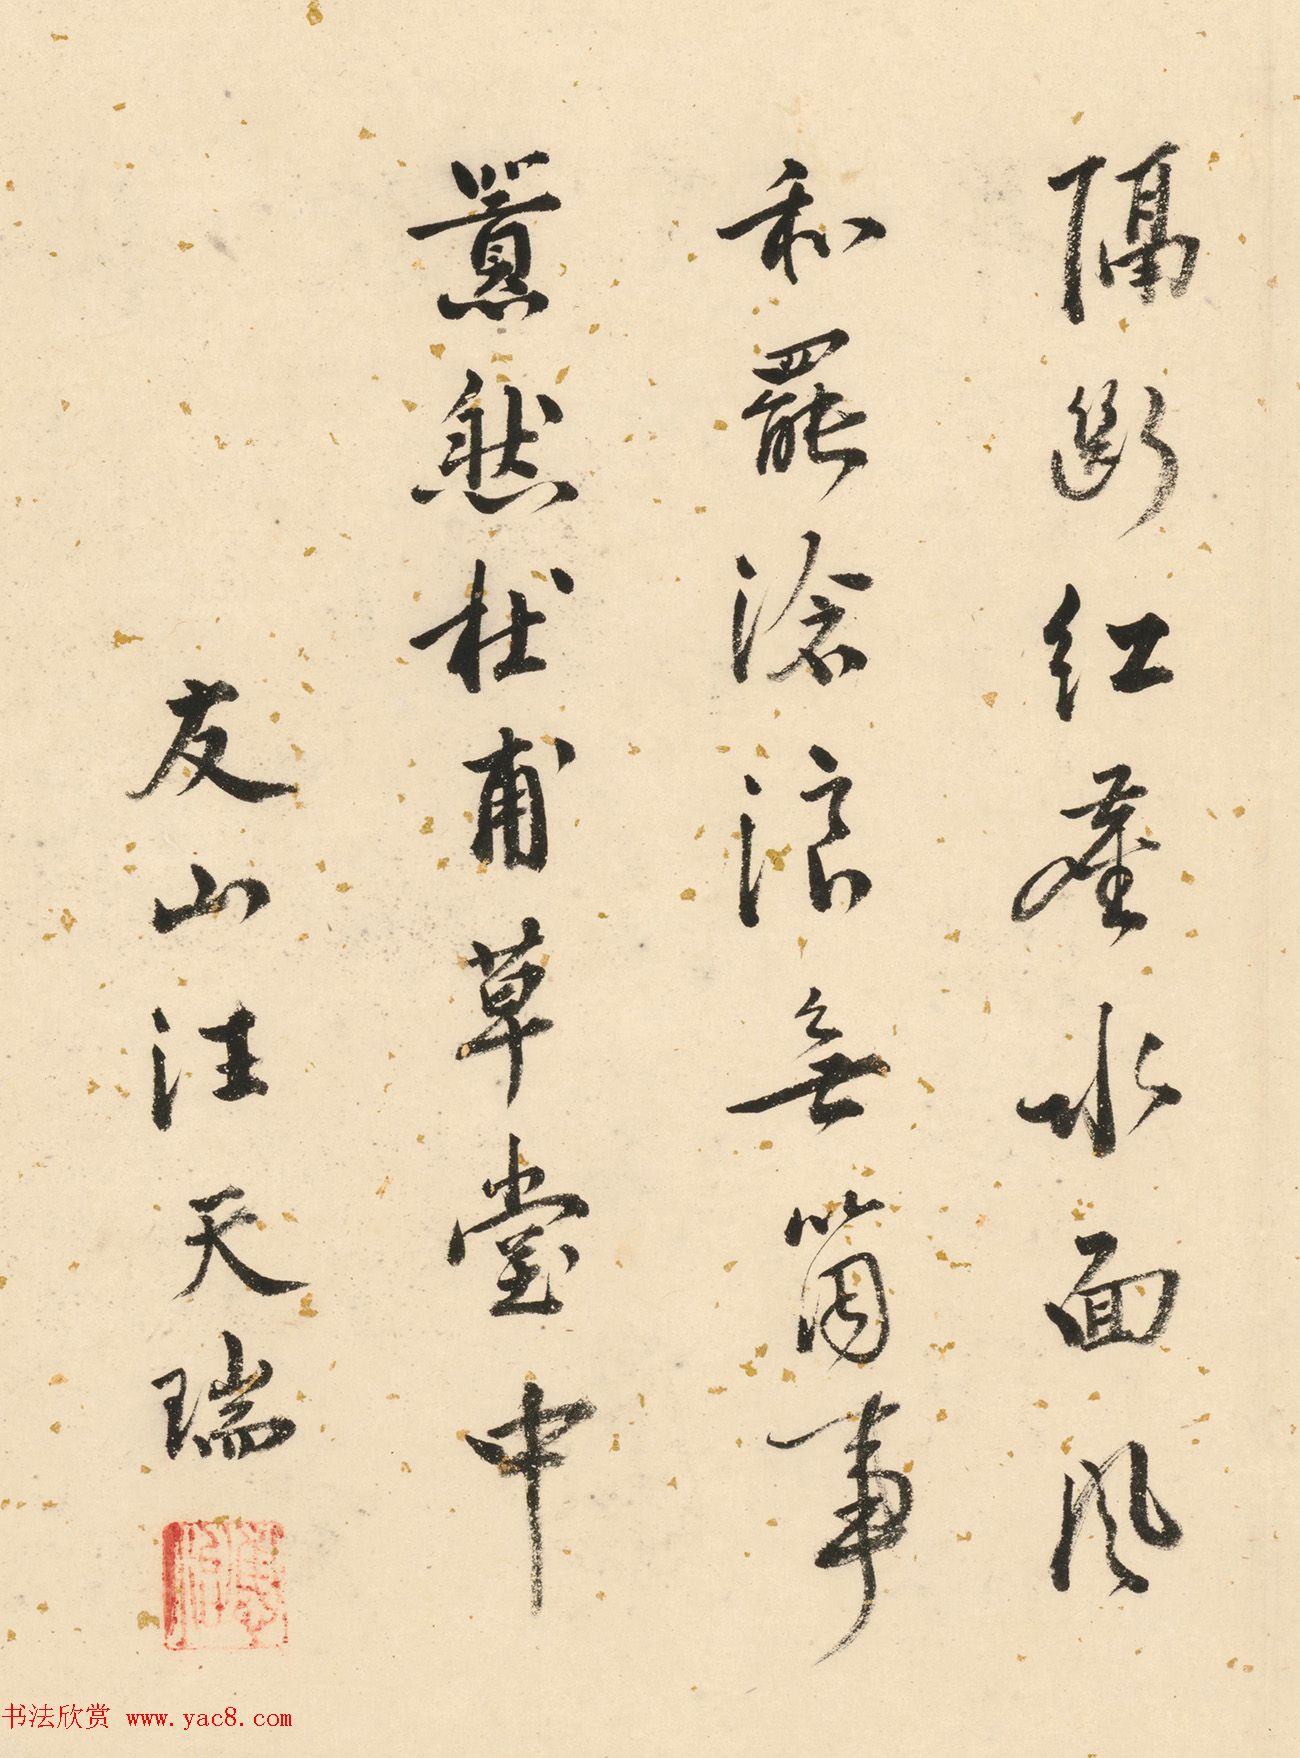 隔斷紅塵水面風
和罷滄浪無箇事
嚣然杜甫草堂中
友山汪天瑞
书法欣赏 www.yac8.com